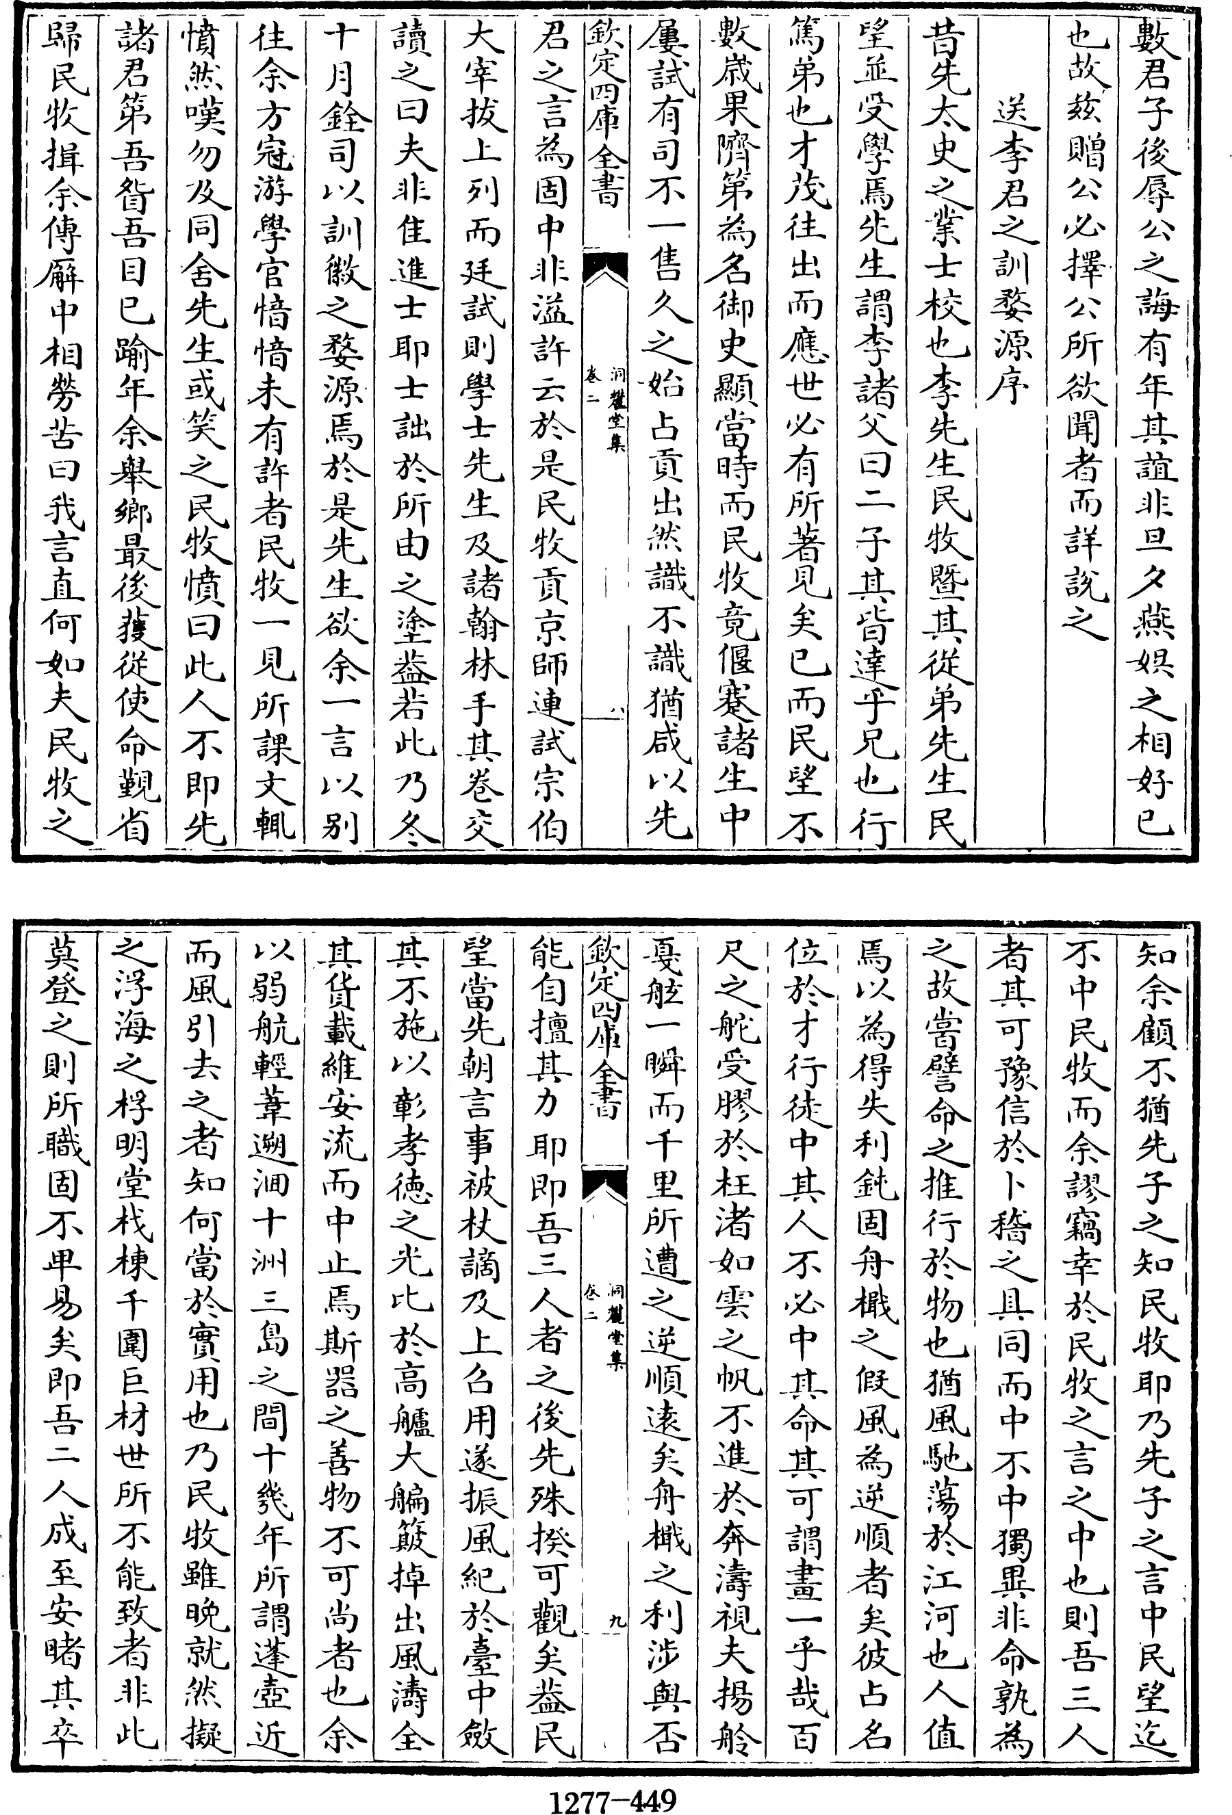 數君子後辱公之誨有年其誼非旦夕燕娯之相好已
也故兹贈公必擇公所欲聞者而詳説之
送李君之訓婺源序
昔先太史之業士校也李先生民牧暨其從弟先生民
望並受學焉先生謂李諸父曰二子其皆達乎兄也行
篤弟也才茂往出而應世必有所著見矣已而民望不
數嵗果隮第為名御史顯當時而民牧竟偃蹇諸生中
屢試有司不一售久之始占貢出然識不識猶咸以先
欽定四庫全書
洞麓堂集
卷二
八
君之言為固中非溢許云於是民牧貢京師連試宗伯
大宰拔上列而廷試則學士先生及諸翰林手其卷交
讀之曰夫非隹進士耶士詘於所由之塗葢若此乃冬
十月銓司以訓徽之婺源焉於是先生欲余一言以别
往余方冠游學官愔愔未有許者民牧一見所課文輒
憤然嘆勿及同舍先生或笑之民牧憤曰此人不即先
諸君第吾眢吾目已踰年余舉鄉最後獲從使命覲省
歸民牧揖余傳廨中相勞苦曰我言直何如夫民牧之
知余顧不猶先子之知民牧耶乃先子之言中民望迄
不中民牧而余謬竊幸於民牧之言之中也則吾三人
者其可豫信於卜稽之具同而中不中獨異非命孰為
之故嘗譬命之推行於物也猶風馳蕩於江河也人值
焉以為得失利鈍固舟檝之假風為逆順者矣彼占名
位於才行徒中其人不必中其命其可謂畫一乎哉百
尺之舵受膠於枉渚如雲之帆不進於奔濤視夫揚舲
戞舷一瞬而千里所遭之逆順逺矣舟檝之利涉與否
欽定四庫全書
洞麓堂集
卷二
九
能自擅其力耶即吾三人者之後先殊揆可觀矣葢民
望當先朝言事被杖謫及上召用遂振風紀於臺中斂
其不施以彰孝徳之光比於高艫大艑簸掉出風濤全
其貨載維安流而中止焉斯器之善物不可尚者也余
以弱航輕葦遡洄十洲三島之間十幾年所謂蓬壺近
而風引去之者知何當於實用也乃民牧雖晚就然擬
之浮海之桴明堂栈棟千圍巨材世所不能致者非此
莫登之則所職固不卑易矣即吾二人成至安睹其卒
1277-449